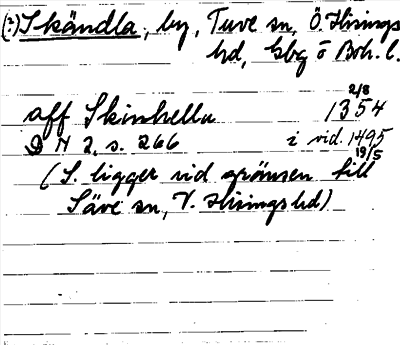 (?) Skändla, by, Tuve sn, Ö. Hisings
hd, Gbg o Boh. l.
aff Skinhella 1354 2/8
D N 2, s. 266 i vid. 1495 19/5
(S. ligger vid gränsen till
Säve sn, V. Hisings hd)